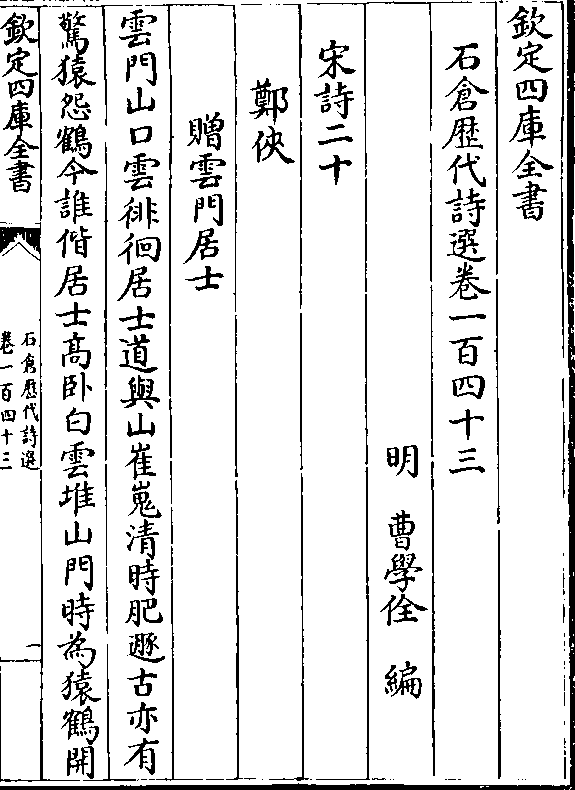 欽定四庫全書
石倉歴代詩選卷一百四十三
明　曹學佺　編
宋詩二十
鄭俠
贈雲門居士
雲門山口雲徘徊居士道與山崔嵬清時肥遯古亦有
驚猿怨鶴今誰偕居士髙卧白雲堆山門時為猿鶴開
欽定四庫全書
石倉歴代詩選
卷一百四十三
一